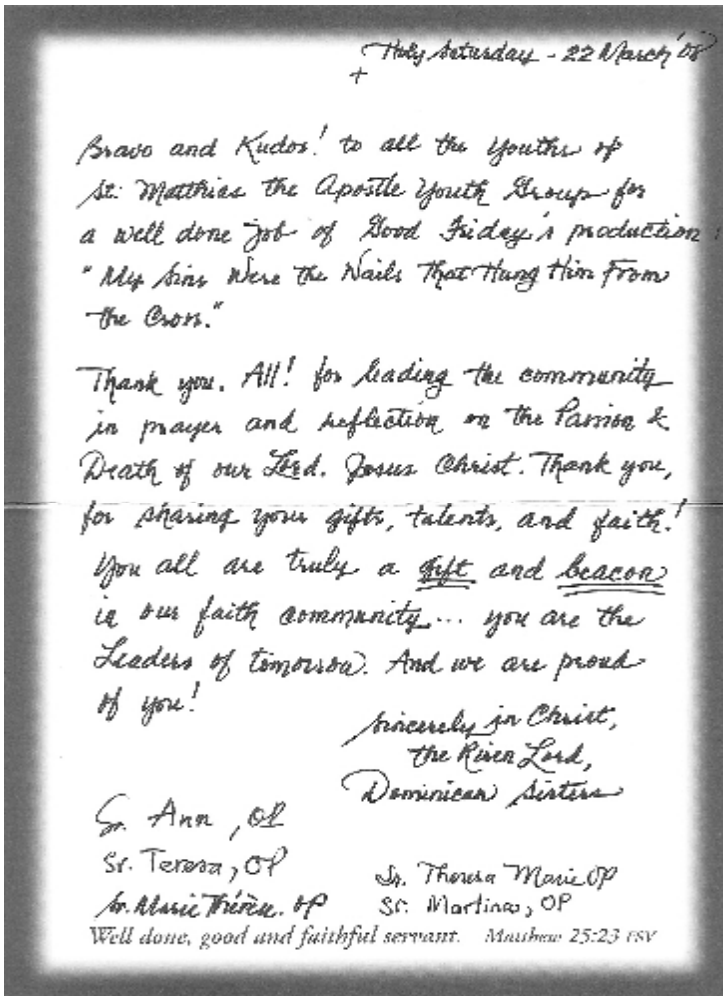 Holy Saturday - 22 March '08
+
Bravo and Kudos! to all the youths of
St. Matthias the Apostle Youth Group for
a well done job of Good Friday's production:
"My Sins Were the Nails That Hung Him From
the Cross."
Thank you. All! for leading the community
in prayer and reflection on the Passion &
Death of our Lord. Jesus Christ. Thank you,
for sharing your gifts, talents, and faith!
You all are truly a gift and beacon
in our faith community... you are the
Leaders of tomorrow. And we are proud
of you!
Sincerely in Christ,
the Risen Lord,
Dominican Sisters
Sr. Ann, OP
Sr. Teresa, OP
Sr. Theresa Marie OP
Sr. Marie Thérèse. OP
Sr. Martina, OP
Well done, good and faithful servant. Matthew 25:23 RSV